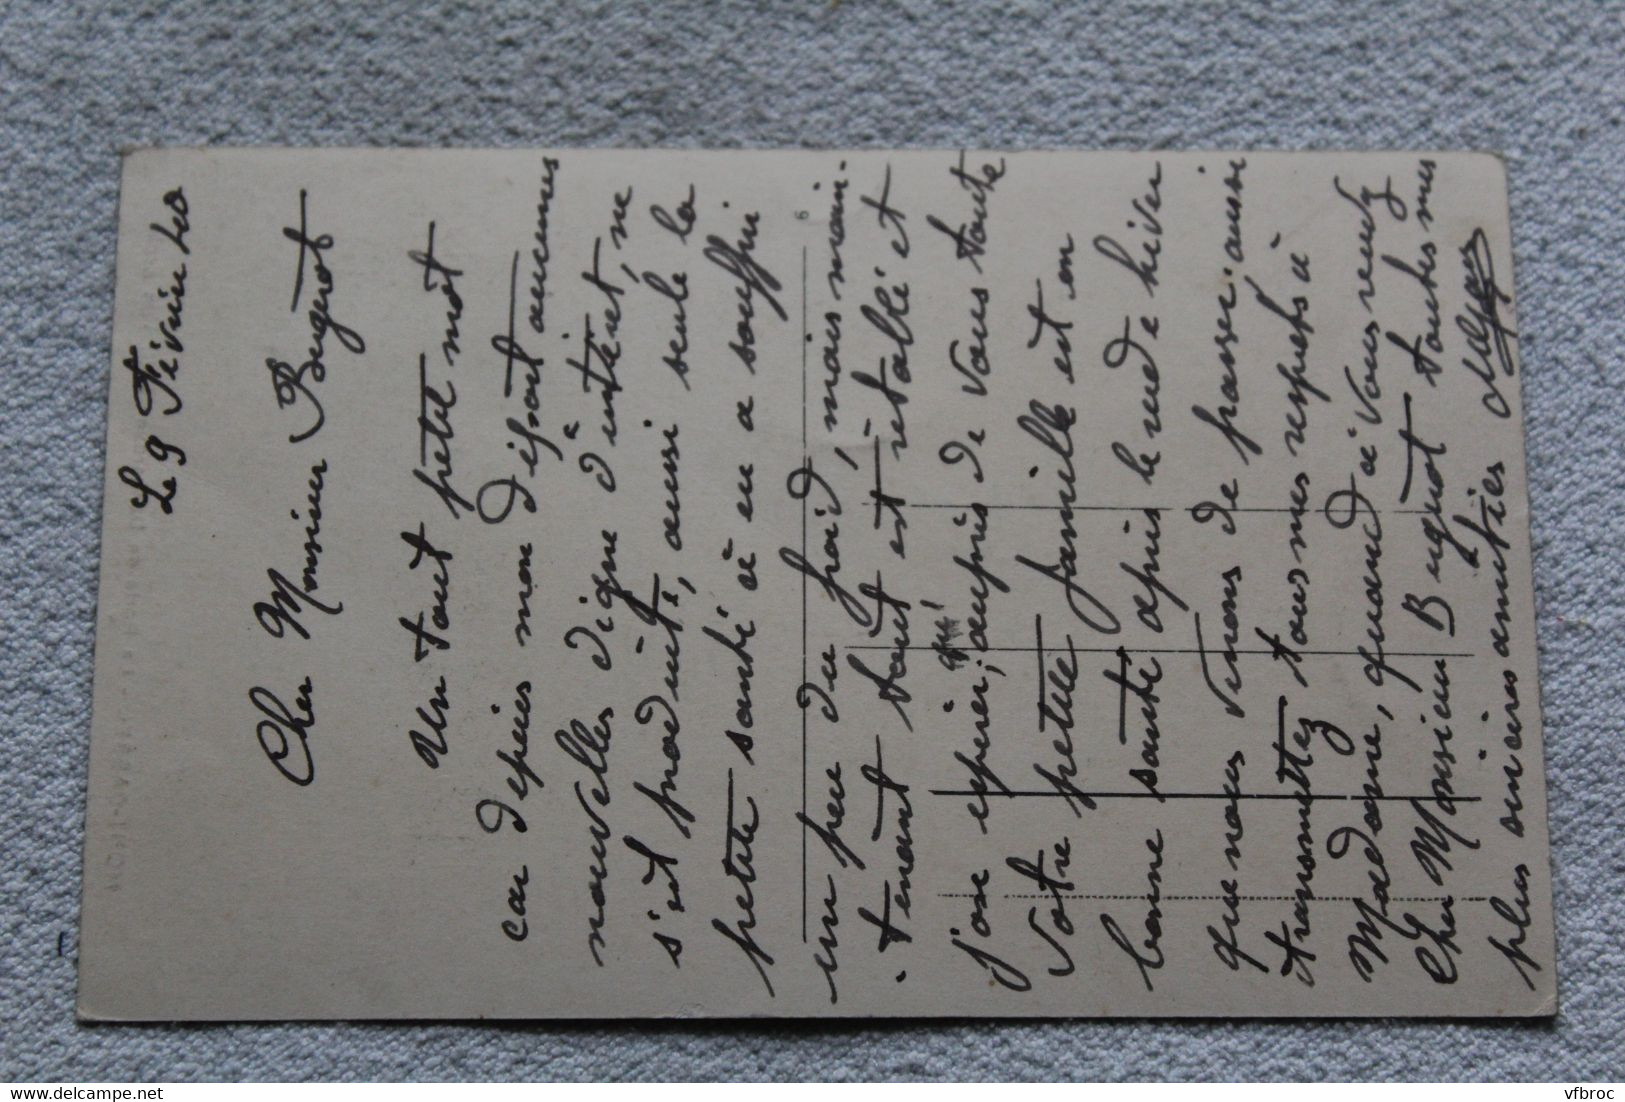 Le 9 Février 40
Cher Monsieur Buguot
Un tout petit môt
car depuis mon départ aucunes
nouvelles digne d'intéret, ne
s'est produite, aussi seule la
petite santé à eu a souffrir
un peu du froid, mais main-
-tenant tout est rétablé et
j'ose espérer, auprès de vous toute
Votre petite famille est en
bonne santé après le rude hiver
que nous venons de passer aussi
transmettez tous mes respects à
Madame, quand à Vous veuillez
Cher Monsieur Buguot toutes mes
plus sincères amitiés
6
delcampe.net
vfbroc